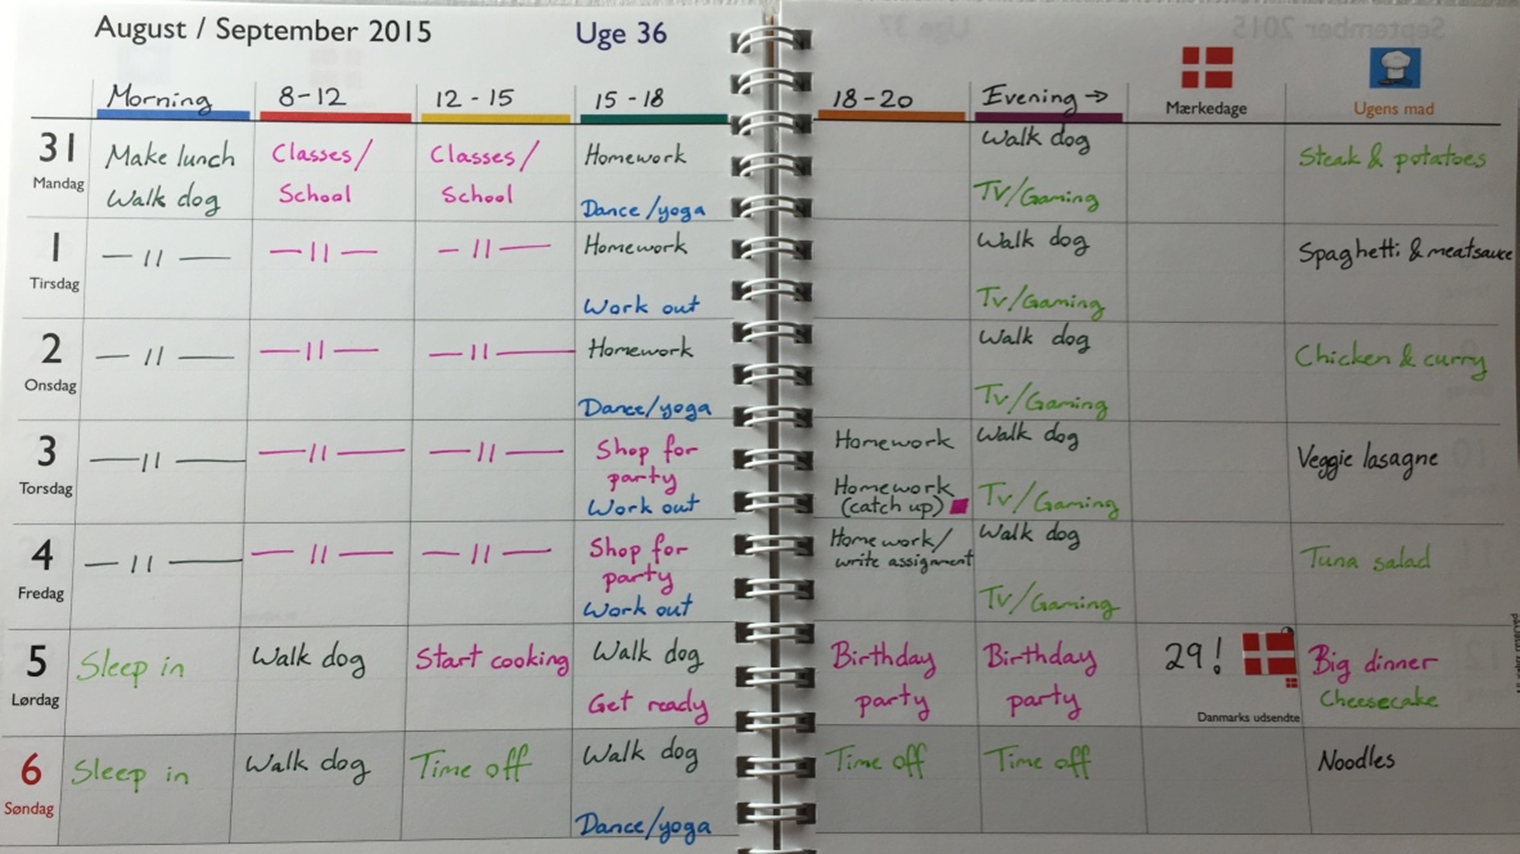 August / September 2015
Uge 36
Morning
8-12
12-15
15-18
18-20
Evening →
Mærkedage
Ugens mad
31
Mandag
Make lunch
Walk dog
Classes/
School
Classes/
School
Homework
Dance/yoga
Walk dog
TV/Gaming
Steak & potatoes
1
Tirsdag
— 11 —
— 11 —
— 11 —
Homework
Work out
Walk dog
TV/Gaming
Spaghetti & meatsauce
2
Onsdag
— 11 —
— 11 —
— 11 —
Homework
Dance/yoga
Walk dog
TV/Gaming
Chicken & curry
3
Torsdag
— 11 —
— 11 —
— 11 —
Shop for
party
Work out
Homework
Homework
(catch up)
Walk dog
TV/Gaming
Veggie lasagne
4
Fredag
— 11 —
— 11 —
— 11 —
Shop for
party
Work out
Homework/
write assignment
Walk dog
TV/Gaming
Tuna salad
5
Lørdag
Sleep in
Walk dog
Start cooking
Walk dog
Get ready
Birthday
party
Birthday
party
29!
Danmarks udsendte
Big dinner
Cheesecake
6
Søndag
Sleep in
Walk dog
Time off
Walk dog
Dance/yoga
Time off
Time off
Noodles